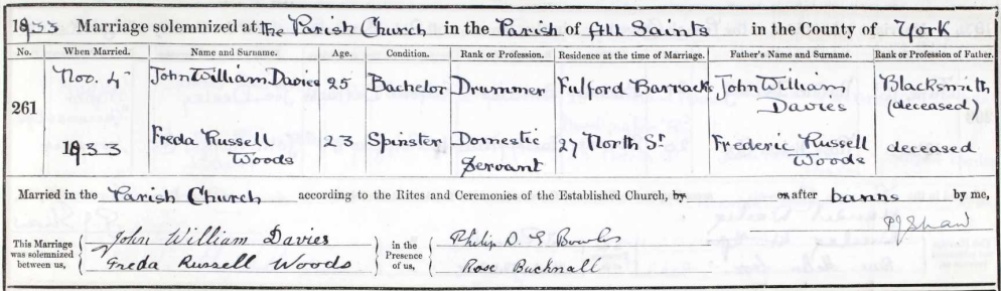 1933 Marriage solemnized at the Parish Church in the Parish of All Saints in the County of York
No. When Married. Name and Surname. Age. Condition. Rank or Profession. Residence at the time of Marriage. Father's Name and Surname. Rank or Profession of Father.
261 Nov. 4th 1933 John William Davies 25 Bachelor Drummer Fulford Barracks John William Davies Blacksmith (deceased)
Freda Russell Woods 23 Spinster Domestic Servant 27 North St Frederic Russell Woods deceased
Married in the Parish Church according to the Rites and Ceremonies of the Established Church, by or after banns by me,
PJ Shaw
This Marriage was solemnized between us, John William Davies Freda Russell Woods in the Presence of us, Philip D. G Bowles Rose Bucknall